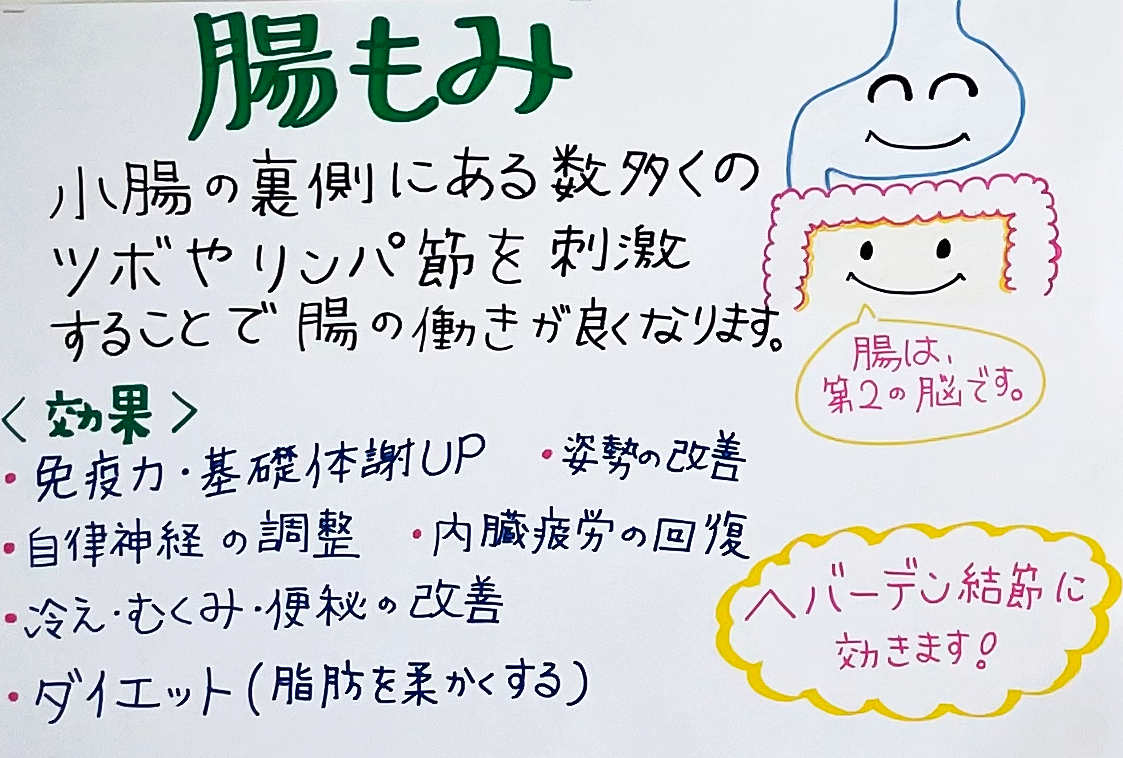 腸もみ
小腸の裏側にある数多くの
ツボやリンパ節を刺激
することで腸の働きが良くなります。
腸は、
第2の脳です。
<効果>
・免疫力・基礎体謝UP ・姿勢の改善
・自律神経の調整 ・内臓疲労の回復
・冷え・むくみ・便秘の改善
・ダイエット(脂肪を柔かくする)
ヘバーデン結節に
効きます!